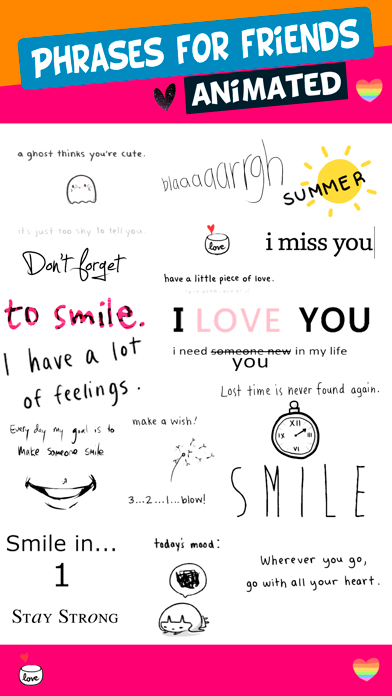 PHRASES FOR FRIENDS
ANIMATED
a ghost thinks you're cute.
it's just too shy to tell you.
blaaaaarrgh
SUMMER
Don't forget
to smile.
love
i miss you
have a little piece of love.
I LOVE YOU
i need someone new in my life
you
I have a lot
of feelings.
Lost time is never found again.
XII
III
VI
IX
Every day my goal is to
make someone smile
make a wish!
3...2...1...blow!
SMILE
Smile in...
1
today's mood:
Wherever you go,
go with all your heart.
STAY STRONG
love